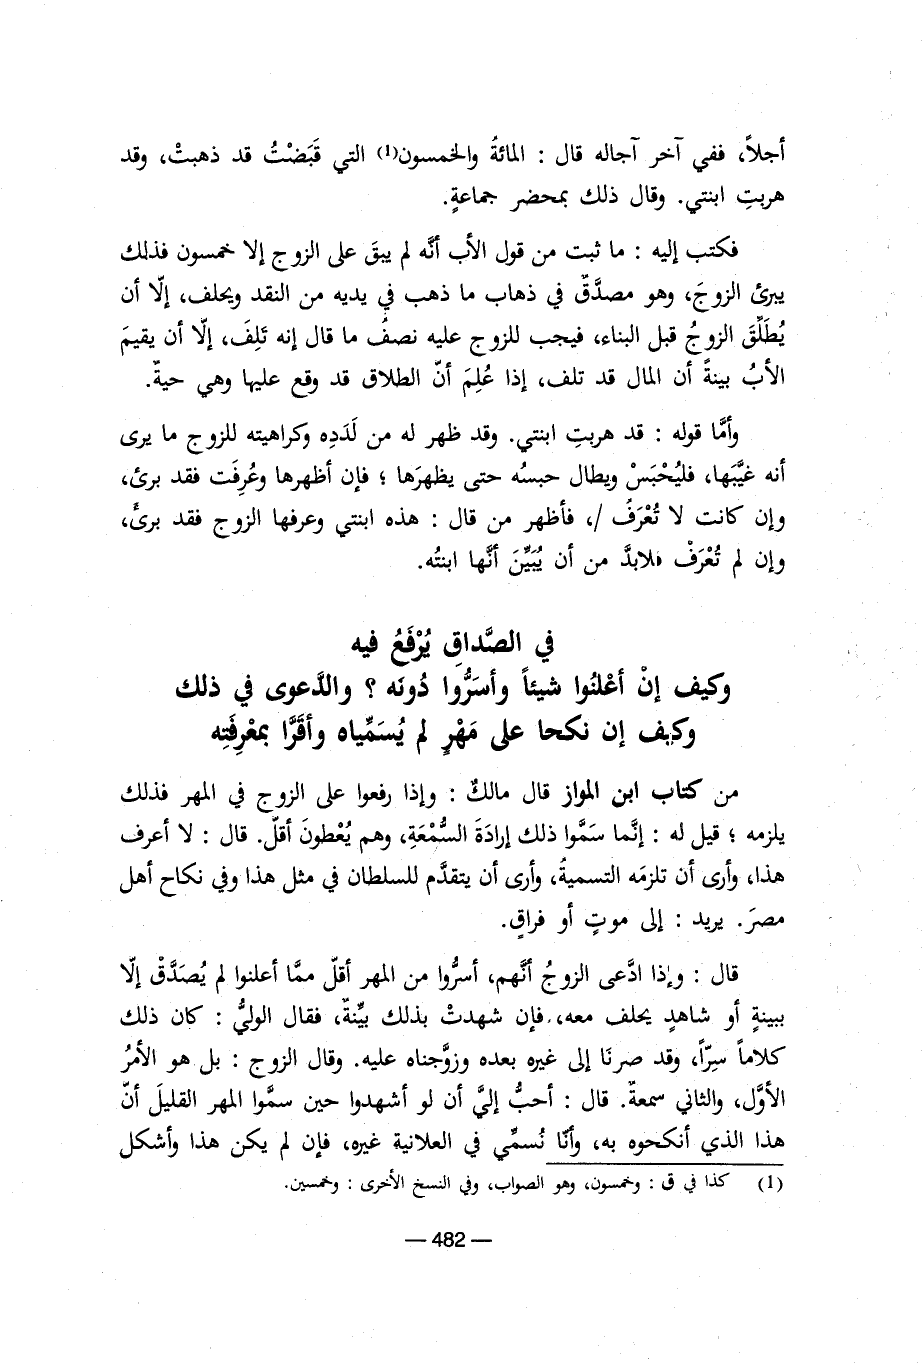 أجلاً، ففي آخر آجاله قال : المائةُ والخمسون(1) التي قَبَضْتُ قد ذهبتْ، وقد
هربتِ ابنتي. وقال ذلك بمحضر جماعةٍ.
فكتب إليه : ما ثبت من قول الأب أنَّه لم يبقَ على الزوج إلا خمسون فذلك
يبرئ الزوجَ، وهو مصدَّقٌ في ذهاب ما ذهب في يديه من النقد ويحلف، إلّا أن
يُطَلِّقَ الزوجُ قبل البناء، فيجب للزوج عليه نصفُ ما قال إنه تَلِفَ، إلّا أن يقيمَ
الأبُ بينةً أن المال قد تلف، إذا عُلِمَ أنّ الطلاق قد وقع عليها وهي حيةٌ.
وأمَّا قوله : قد هربتِ ابنتي. وقد ظهر له من لَدَدِه وكراهيته للزوج ما يرى
أنه غيَّبَها، فليُحْبَسْ ويطال حبسُه حتى يظهرَها ؛ فإن أظهرها وعُرِفَت فقد برئ،
وإن كانت لا تُعْرَفُ /، فأظهر من قال : هذه ابنتي وعرفها الزوج فقد برئَ،
وإن لم تُعْرَفْ فلابدَّ من أن يُبَيِّنَ أنَّها ابنتُه.
في الصَّداقِ يُرْفَعُ فيه
وكيف إنْ أعْلنُوا شيئاً وأسَرُّوا دُونَه ؟ والدَّعوى في ذلك
وكيف إن نكحا على مَهْرٍ لم يُسَمِّياه وأقَرَّا بمعْرِفَتِه
من كتاب ابن المواز قال مالكٌ : وإذا رفعوا على الزوج في المهر فذلك
يلزمه ؛ قيل له : إنَّما سَمَّوا ذلك إرادَةَ السُّمْعَةِ، وهم يُعْطونَ أقلّ. قال : لا أعرف
هذا، وأرى أن تلزمَه التسميةُ، وأرى أن يتقدَّم للسلطان في مثل هذا وفي نكاح أهل
مصرَ. يريد : إلى موتٍ أو فراقٍ.
قال : وإذا ادَّعى الزوجُ أنَّهم، أسرُّوا من المهر أقلّ ممَّا أعلنوا لم يُصَدَّقْ إلّا
ببينةٍ أو شاهدٍ يحلف معه، فإن شهدتْ بذلك بيِّنةٌ، فقال الوليُّ : كان ذلك
كلاماً سِرّاً، وقد صرنَا إلى غيره بعده وزوَّجناه عليه. وقال الزوج : بل هو الأمرُ
الأوَّل، والثاني سمعةٌ. قال : أحبُّ إليَّ أن لو أشهدوا حين سمَّوا المهر القليلَ أنّ
هذا الذي أنكحوه به، وأنّا نُسمِّي في العلانية غيره، فإن لم يكن هذا وأشكل
(1) كذا في ق : وخمسون، وهو الصواب، وفي النسخ الأخرى : وخمسين.
— 482 —